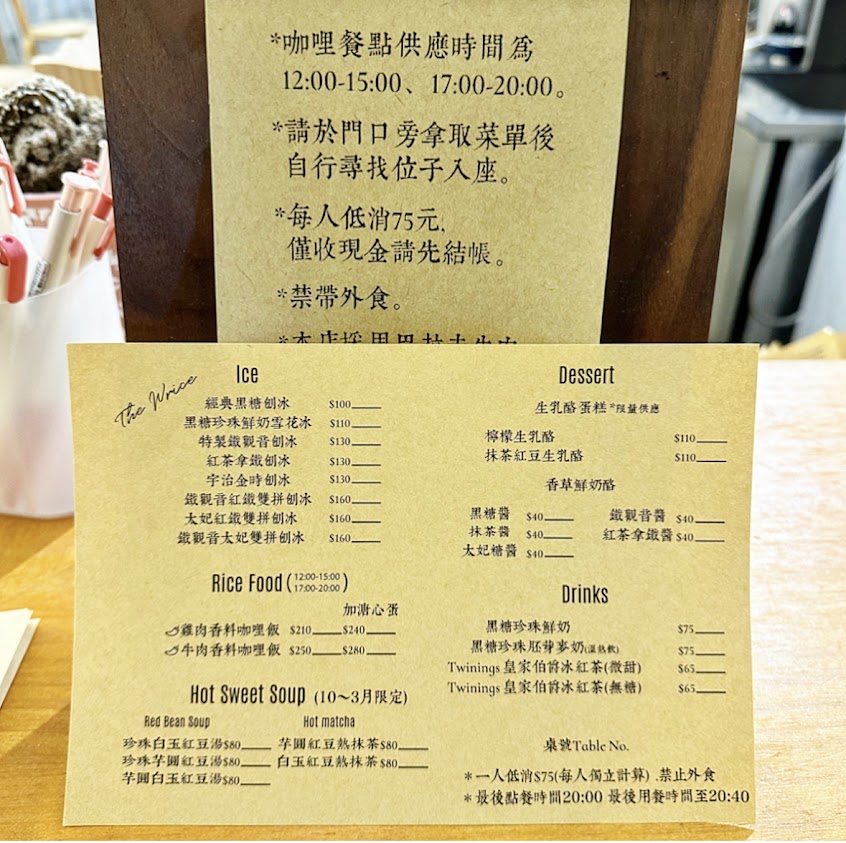 *咖哩餐點供應時間為
12:00-15:00、17:00-20:00。
*請於門口旁拿取菜單後
自行尋找位子入座。
*每人低消75元,
僅收現金請先結帳。
*禁帶外食。
The Wrice
Ice
經典黑糖刨冰 $100
黑糖珍珠鮮奶雪花冰 $110
特製鐵觀音刨冰 $130
紅茶拿鐵刨冰 $130
宇治金時刨冰 $130
鐵觀音紅鐵雙拼刨冰 $160
太妃紅鐵雙拼刨冰 $160
鐵觀音太妃雙拼刨冰 $160
Rice Food (12:00-15:00
17:00-20:00)
加溏心蛋
雞肉香料咖哩飯 $210 $240
牛肉香料咖哩飯 $250 $280
Hot Sweet Soup (10～3月限定)
Red Bean Soup
珍珠白玉紅豆湯$80
珍珠芋圓紅豆湯$80
芋圓白玉紅豆湯$80
Hot matcha
芋圓紅豆熱抹茶$80
白玉紅豆熱抹茶$80
Dessert
生乳酪蛋糕*限量供應
檸檬生乳酪 $110
抹茶紅豆生乳酪 $110
香草鮮奶酪
黑糖醬 $40 鐵觀音醬 $40
抹茶醬 $40 紅茶拿鐵醬 $40
太妃糖醬 $40
Drinks
黑糖珍珠鮮奶 $75
黑糖珍珠胚芽麥奶(溫熱飲) $75
Twinings 皇家伯爵冰紅茶(微甜) $65
Twinings 皇家伯爵冰紅茶(無糖) $65
桌號Table No.
*一人低消$75(每人獨立計算) .禁止外食
*最後點餐時間20:00 最後用餐時間至20:40